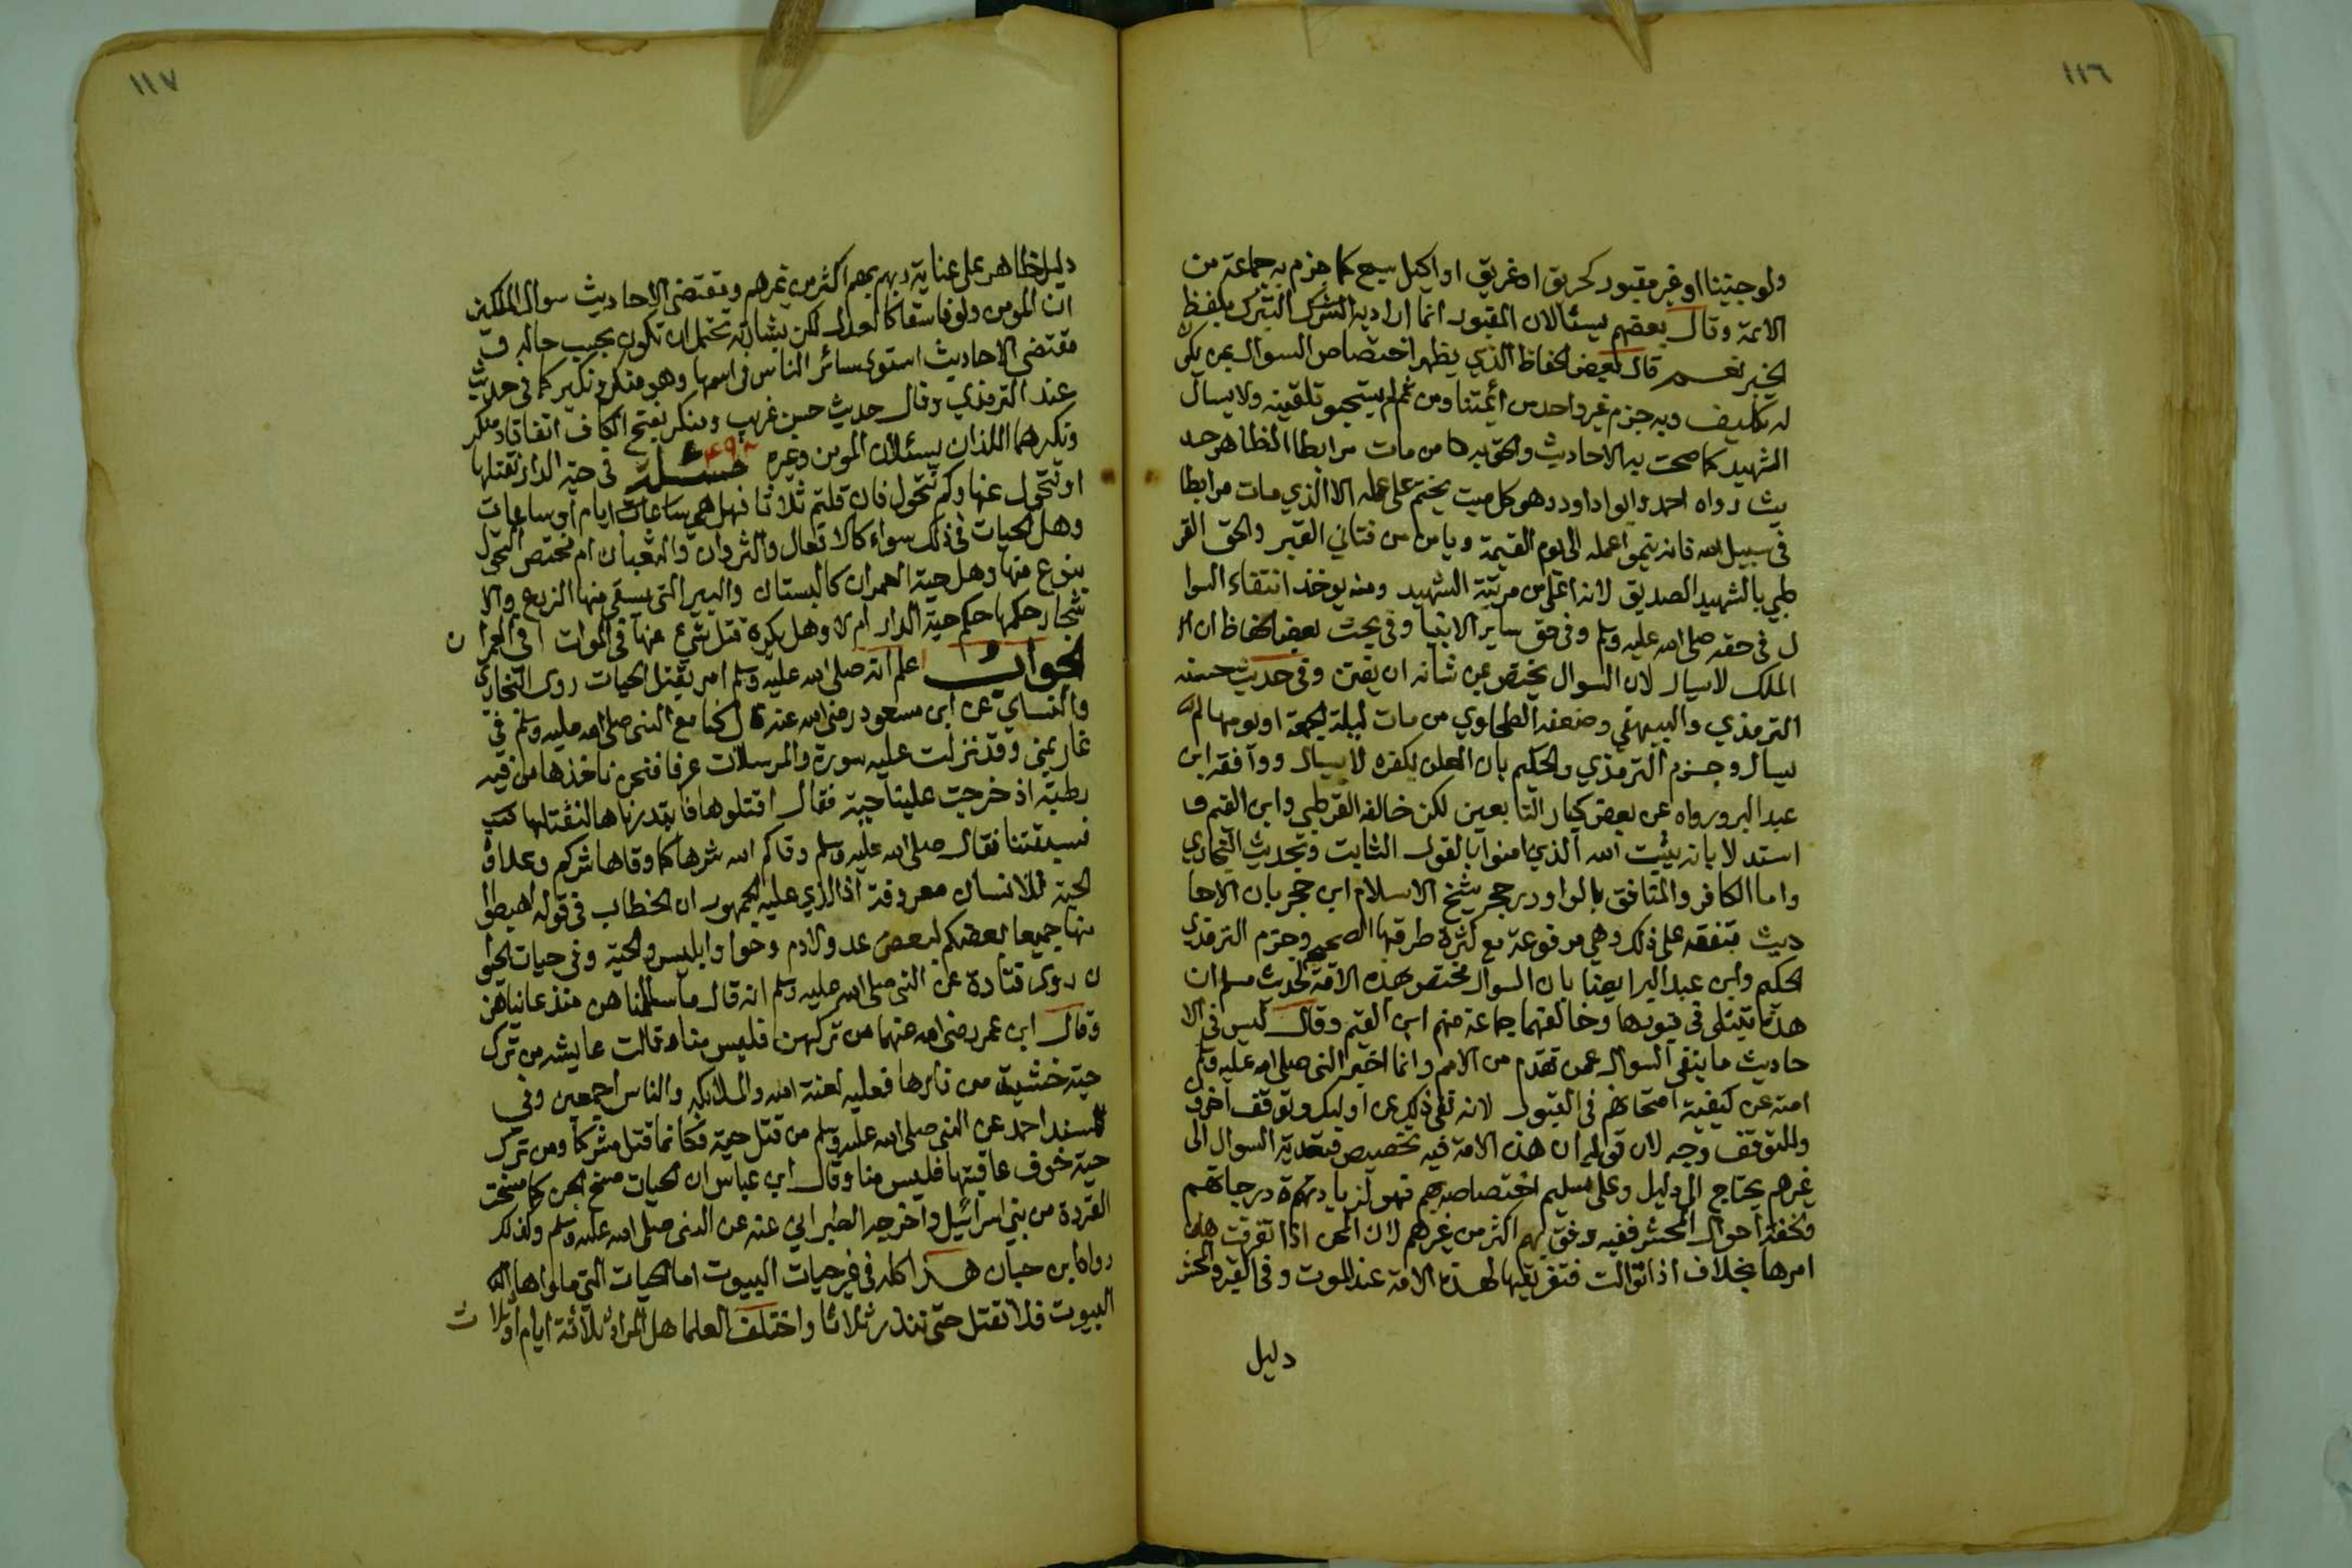 ١١٦
ولو جنينا او غير مقبور كحريق او غريق او اكيل سبع كما جزم به جماعة من
الائمة وقال بعضهم يسئالان المقبور انما اراد به التبرك بلفظ
الخبر نعم قال بعض الحفاظ الذي يظهر اختصاص السوال بمن يكون
له تكليف وبه جزم غير واحد من ائمتنا ومن ثم لم يستحبو تلقينه ولا يسال
الشهيد كما صحت به الاحاديث والحق به من مات مرابطا لظاهر حد
يث رواه احمد وابوا داود وهو كل ميت يختم على عمله الا الذي مات مرابطا
في سبيل الله فانه ينموا عمله الى يوم القيمة ويامن من فتاني القبر والحق القر
طبي بالشهيد الصديق لانه اعلى من مرتبة الشهيد ومنه يوخذ انتقاء السوا
ل في حقه صلى الله عليه وسلم وفي حق ساير الانبيا وفي بحث بعض الحفاظ ان
الملك لا يسال لان السوال يختص بمن شانه ان يفتن وفي حديث حسنه
الترمذي والبيهقي وضعفه الطحاوي من مات ليلة الجمعة او يومها لم
يسال وجزم الترمذي والحكيم بان المعلن بكفره لا يسال ووافقه ابن
عبد البر ورواه عن بعض كبار التابعين لكن خالفه القرطبي وابن القيم و
استدلا باية يثبت الله الذين امنوا بالقول الثابت وبحديث البخاري
واما الكافر والمنافق بالواو ورجح شيخ الاسلام ابن حجر بان الاحا
ديث متفقة على ذلك وهي مرفوعة مع كثرة طرقها الصحيحة وجزم الترمذي
الحكيم وابن عبد البر ايضا بان السوال مختص بهذه الامة لحديث مسلم ان
هذه الامة تبتلى في قبورها وخالفهما جماعة منهم ابن القيم وقال ليس في الا
حاديث ما ينفي السوال عمن تقدم من الامم وانما اخبر النبي صلى الله عليه وسلم
امته عن كيفية امتحانهم في القبور لانه نفي ذلك عن اوليك وتوقف اخرون
وللتوقف وجه لان قوله ان هذه الامة فيه تخصيص فتعدية السوال الى
غيرهم يحتاج الى دليل وعلى تسليم اختصاصه بهم فهو لزيادة درجاتهم
ولخفة احوال المحشر ففيه رفق بهم اكثر من غيرهم لان المحن اذا تفرقت هان
امرها بخلاف اذا توالت فتفريقها لهذه الامة عند الموت وفي القبر والحشر
دليل
١١٧
دليل ظاهر على عناية ربهم بهم اكثر من غيرهم ومقتضى الاحاديث سوال الملكين
ان المومن ولو فاسقا كالعدل لكن بشارته تحتمل ان تكون بحسب حاله و
مقتضى الاحاديث استوى سائر الناس في اسمها وهو منكر ونكير كما في حديث
عند الترمذي وقال حديث حسن غريب ومنكر بفتح الكاف اتفاقا ومنكر
ونكير هما اللذان يسئلان المومن وغيره مسئلة في حية الدار نقتلها
او تتحول عنها وكم تتحول فان قلتم ثلاثا فهل هي ساعات ايام او ساعات
وهل الحيات في ذلك سواء كالافعال والثروان والثعبان ام تختص التحول
بنوع منها وهل حية العمران كالبستان والبير التي يسقي منها الزرع والا
شجار حكمها حكم حية الدار ام لا وهل يكره قتل شيء منها في الموات او في العمران
الجواب اعلم انه صلى الله عليه وسلم امر بقتل الحيات روى البخاري
والنساي عن ابن مسعود رضي الله عنه قال كنا مع النبي صلى الله عليه وسلم في
غار بمنى وقد نزلت عليه سورة والمرسلات عرفا فنحن ناخذها من فيه
رطبة اذ خرجت علينا حية فقال اقتلوها فابتدرناها لنقتلها
فسبقتنا فقال صلى الله عليه وسلم وقاكم الله شرها كما وقاها شركم وعداوة
الحية للانسان معروفة اذ الذي عليه الجمهور ان الخطاب في قوله اهبطوا
منها جميعا بعضكم لبعض عدو لادم وحوا وابليس والحية وفي حيات الحيوا
ن روى قتادة عن النبي صلى الله عليه وسلم انه قال ما سالمناهن منذ عاديناهن
وقال ابن عمر رضي الله عنهما من تركهن فليس منا وقالت عايشه من ترك
حية خشية من ثارها فعليه لعنة الله والملائكه والناس اجمعين وفي
مسند احمد عن النبي صلى الله عليه وسلم من قتل حية فكانما قتل مشركا ومن ترك
حية خوف عاقبتها فليس منا وقال ابن عباس ان الحيات مسخ الجن كما مسخت
القردة من بني اسرائيل واخرجه الطبراني عنه عن النبي صلى الله عليه وسلم وكذلك
رواه ابن حبان هذا كله في غير حيات البيوت اما الحيات التي ماواها
البيوت فلا تقتل حتى تنذر ثلاثا واختلف العلما هل المراد ثلاثة ايام او ثلاث